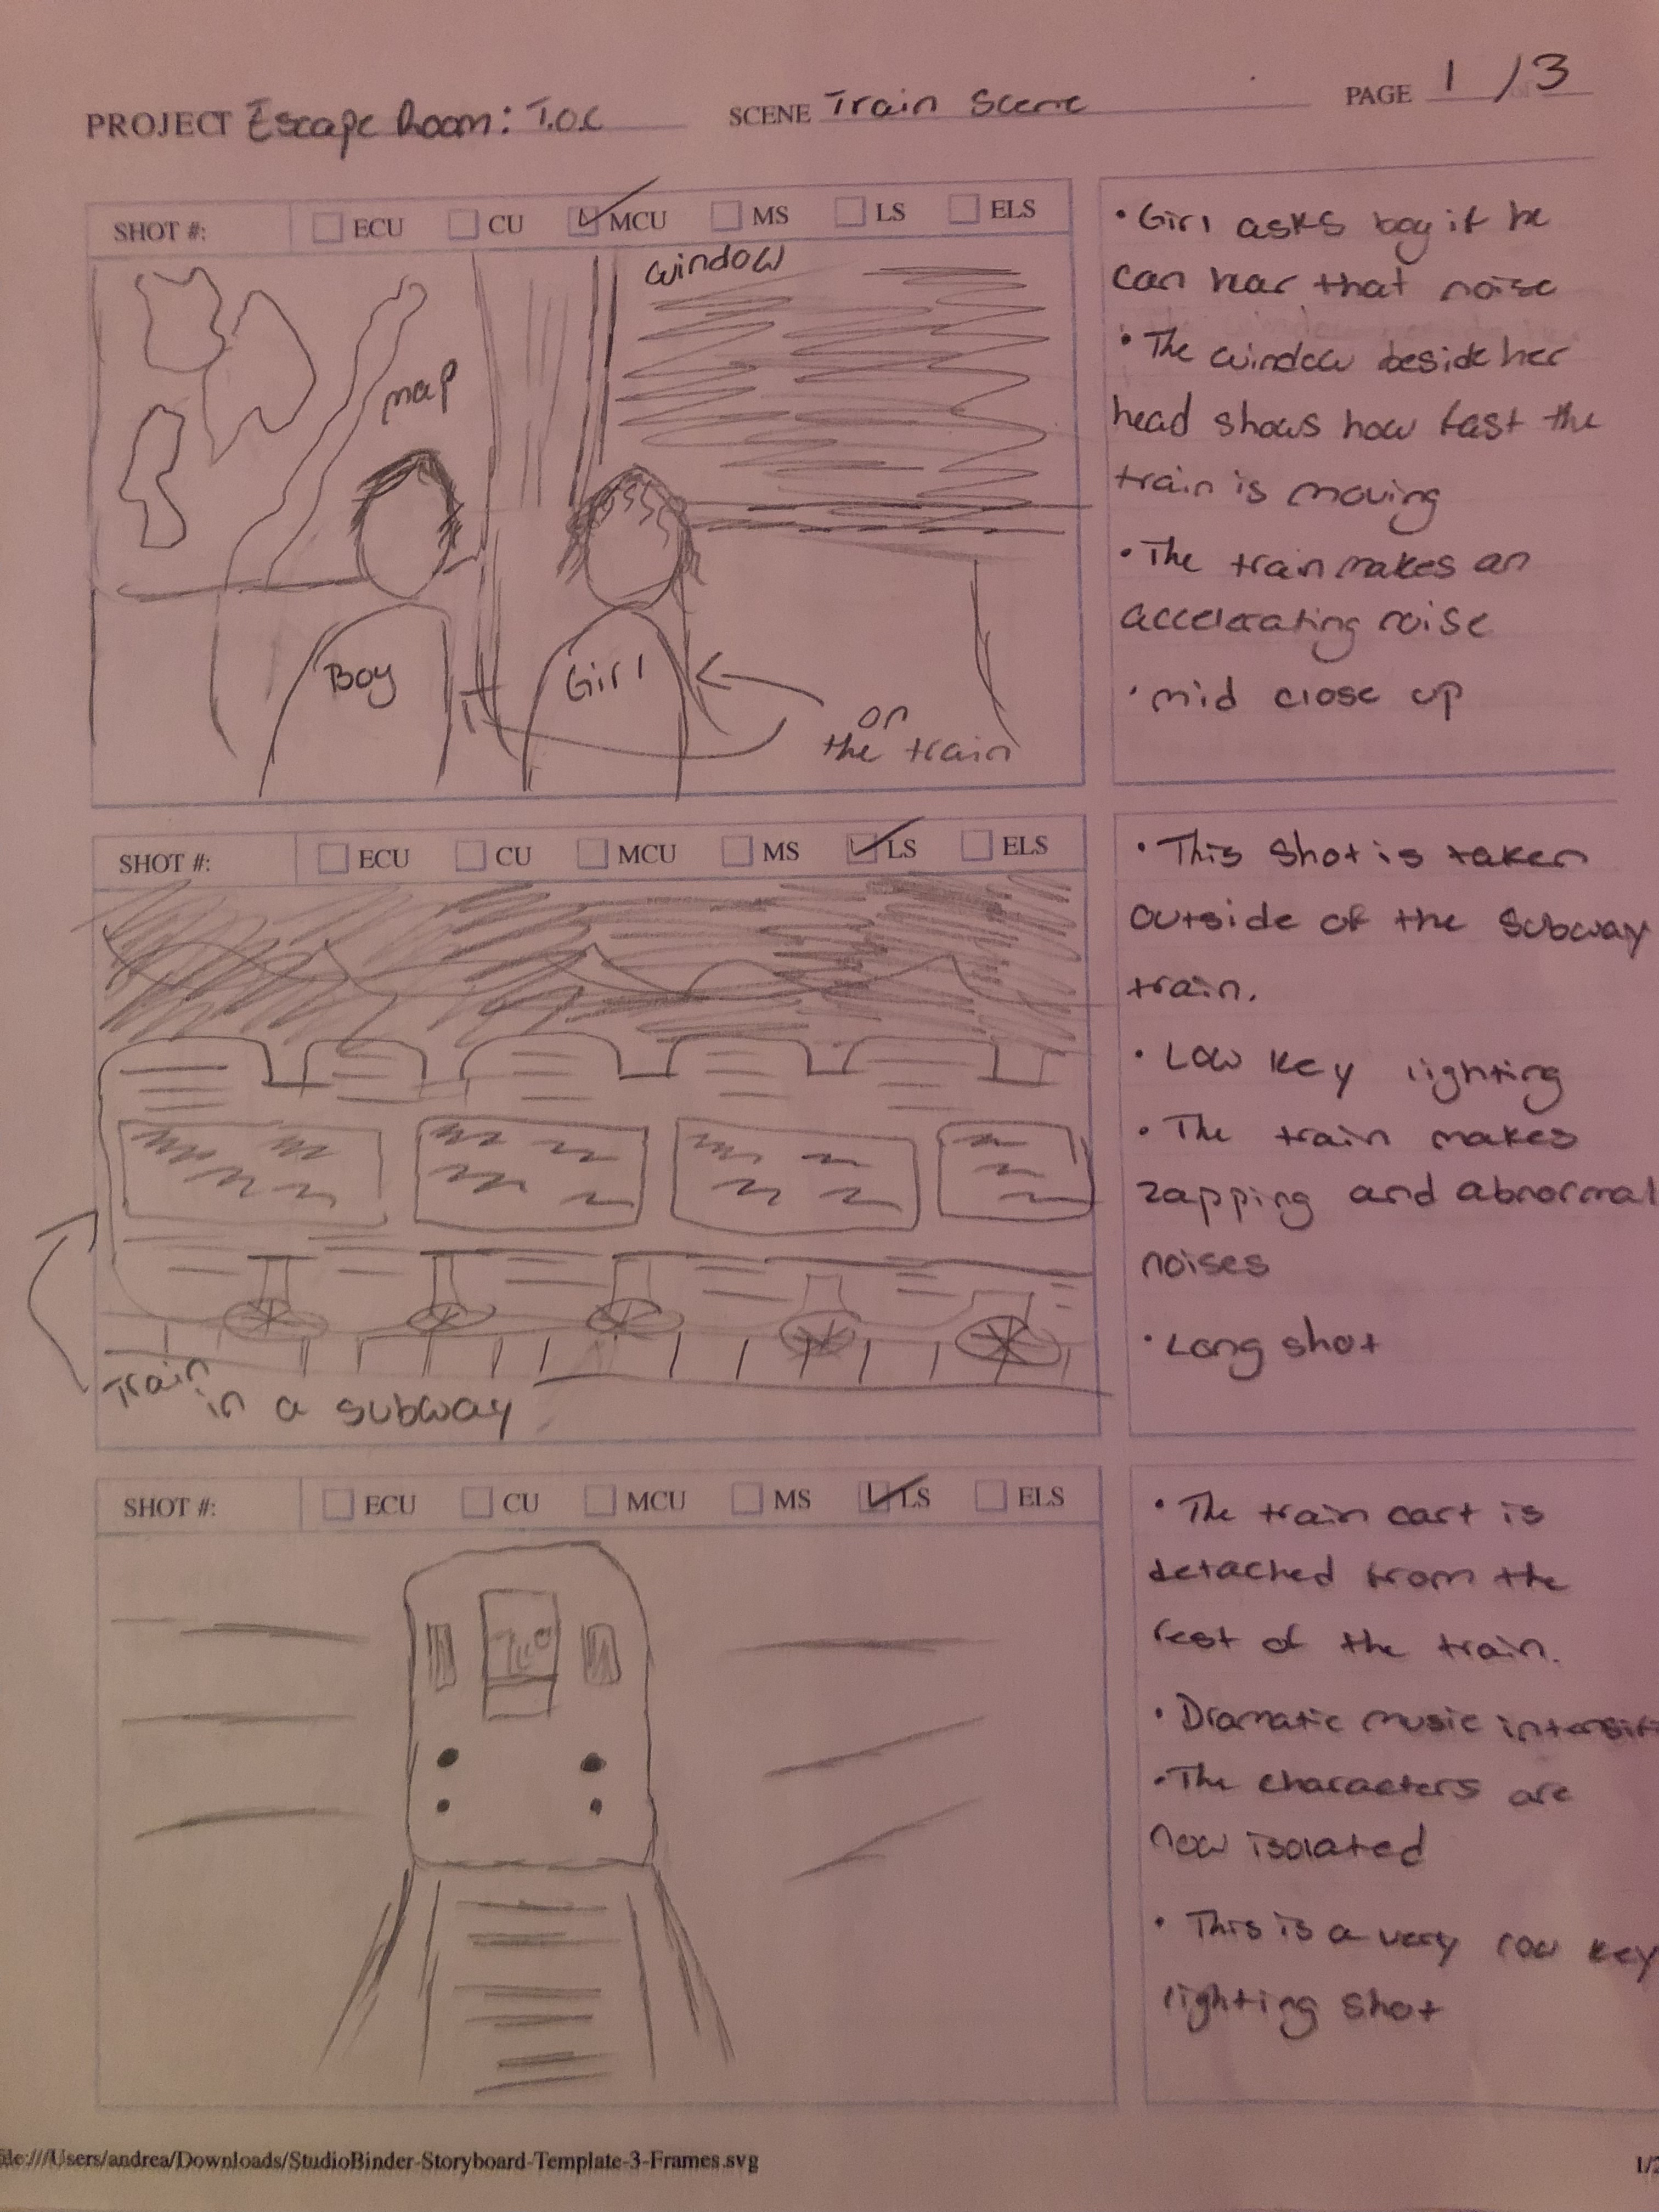 PROJECT Escape Room: T.O.C SCENE Train Scene PAGE 1 / 3
SHOT #: ECU CU MCU MS LS ELS
window
map
Boy
Girl
on
the train
• Girl asks boy if he
can hear that noise
• The window beside her
head shows how fast the
train is moving
• The train makes an
accelerating noise
• mid close up
SHOT #: ECU CU MCU MS LS ELS
Train
in a subway
• This shot is taken
outside of the subway
train.
• Low key lighting
• The train makes
zapping and abnormal
noises
• Long shot
SHOT #: ECU CU MCU MS LS ELS
• The train cart is
detached from the
rest of the train.
• Dramatic music
• The characters are
now isolated
• This is a very low key
lighting shot
file:///Users/andrea/Downloads/StudioBinder-Storyboard-Template-3-Frames.svg
1/2